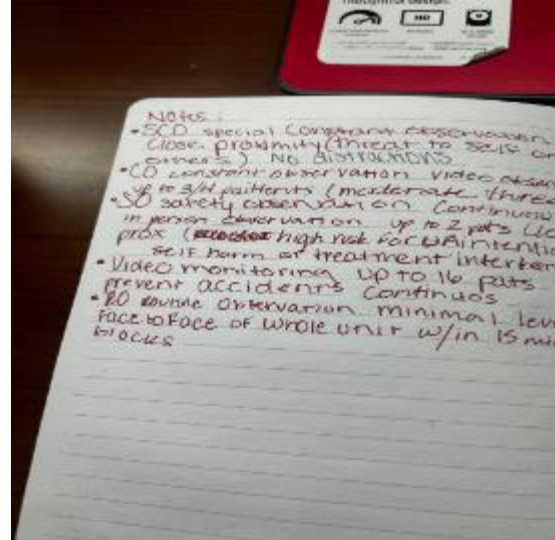 Thoughtful design.
HD
Notes
• SCO special Constant observation
Close proximity (threat to self or
others) No distractions
• CO constant observation video obser
up to 3/4 (
• SO safety observation Continuou
in person observation up to 2 pats
prox ( high risk for
self harm or treatment interfer
• Video monitoring up to 16 pats
prevent accidents Continuos
• RO routine observation minimal leve
Face to Face of whole unit w/in 15 min
blocks